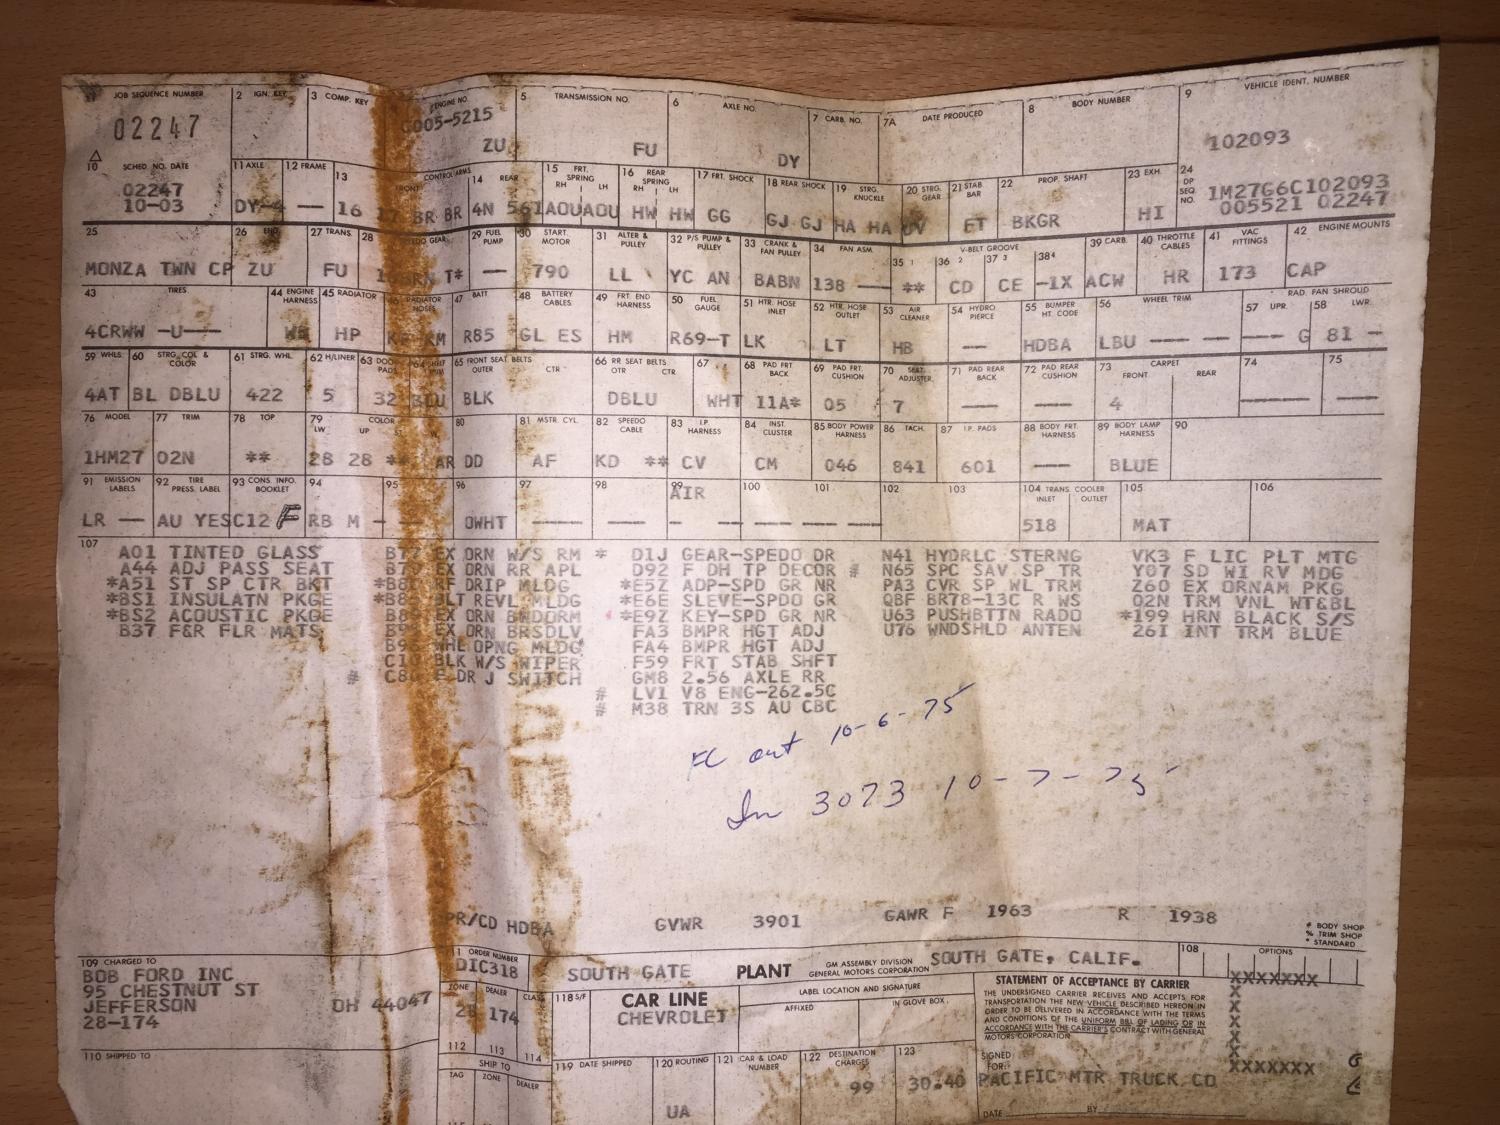 JOB SEQUENCE NUMBER 2 IGN. KEY 3 COMP. KEY ENGINE NO. 5 TRANSMISSION NO. 6 AXLE NO. 7 CARB. NO. 7A DATE PRODUCED 8 BODY NUMBER 9 VEHICLE IDENT. NUMBER
02247 G005-5215 102093
ZU FU DY
10 SCHED NO. DATE 11 AXLE 12 FRAME 13 FRONT CONTROL ARMS 14 REAR 15 FRT. SPRING RH LH 16 REAR SPRING RH LH 17 FRT. SHOCK 18 REAR SHOCK 19 STRG. KNUCKLE 20 STRG. GEAR 21 STAB BAR 22 PROP. SHAFT 23 EXH. 24 DP SEQ. NO.
02247 1M27G6C102093
10-03 DY-4 — 16 BR BR 4N 561AOUAOU HW HW GG GJ GJ HA HA UV FT BKGR HI 005521 02247
25 26 ENG. 27 TRANS. 28 SPEDO GEAR 29 FUEL PUMP 30 START. MOTOR 31 ALTER & PULLEY 32 P/S PUMP & PULLEY 33 CRANK & FAN PULLEY 34 FAN ASM. V-BELT GROOVE 35 1 36 2 37 3 38 4 39 CARB. 40 THROTTLE CABLES 41 VAC FITTINGS 42 ENGINE MOUNTS
MONZA TWN CP ZU FU T* — 790 LL YC AN BABN 138 —— ** CD CE -1X ACW HR 173 CAP
43 TIRES 44 ENGINE HARNESS 45 RADIATOR 46 RADIATOR HOSES 47 BATT 48 BATTERY CABLES 49 FRT. END HARNESS 50 FUEL GAUGE 51 HTR. HOSE INLET 52 HTR. HOSE OUTLET 53 AIR CLEANER 54 HYDRO PIERCE 55 BUMPER HT. CODE 56 WHEEL TRIM RAD. FAN SHROUD 57 UPR. 58 LWR.
4CRWW -U--- HP RM R85 GL ES HM R69-T LK LT HB —— HDBA LBU —— —— —— G 81 -
59 WHLS 60 STRG. COL & COLOR 61 STRG. WHL 62 H/LINER 63 DOOR PADS 64 65 FRONT SEAT BELTS OUTER CTR 66 RR SEAT BELTS OTR CTR 67 68 PAD FRT. BACK 69 PAD FRT. CUSHION 70 SEAT ADJUSTER 71 PAD REAR BACK 72 PAD REAR CUSHION 73 CARPET FRONT REAR 74 75
4AT BL DBLU 422 5 32 BLU BLK DBLU WHT 11A* 05 7 4
76 MODEL 77 TRIM 78 TOP 79 COLOR LW UP 80 81 MSTR CYL. 82 SPEEDO CABLE 83 I.P. HARNESS 84 INST. CLUSTER 85 BODY POWER HARNESS 86 TACH. 87 I.P. PADS 88 BODY FRT. HARNESS 89 BODY LAMP HARNESS 90
1HM27 02N ** 28 28 ** AR DD AF KD ** CV CM 046 841 601 —— BLUE
91 EMISSION LABELS 92 TIRE PRESS. LABEL 93 CONS. INFO. BOOKLET 94 95 96 97 98 99 AIR 100 101 102 103 104 TRANS. COOLER INLET OUTLET 105 106
LR — AU YESC12 F RB M - OWHT 518 MAT
107
A01 TINTED GLASS B77 EX ORN W/S RM * D1J GEAR-SPEDO DR N41 HYDRLC STERNG VK3 F LIC PLT MTG
A44 ADJ PASS SEAT EX ORN RR APL D92 F DH TP DECOR # N65 SPC SAV SP TR Y07 SD WI RV MDG
*A51 ST SP CTR BKT RF DRIP MLDG *E5Z ADP-SPD GR NR PA3 CVR SP WL TRM Z60 EX ORNAM PKG
*BS1 INSULATN PKGE BLT REVL MLDG *E6E SLEVE-SPDO GR QBF BR78-13C R WS 02N TRM VNL WT&BL
*BS2 ACOUSTIC PKGE EX ORN BWDDRM *E9Z KEY-SPD GR NR U63 PUSHBTTN RADO *199 HRN BLACK S/S
B37 F&R FLR MATS EX ORN BRSDLV FA3 BMPR HGT ADJ U76 WNDSHLD ANTEN 26I INT TRM BLUE
B96 WHL OPNG MLDG FA4 BMPR HGT ADJ
BLK W/S WIPER F59 FRT STAB SHFT
# DR J SWITCH GM8 2.56 AXLE RR
# LV1 V8 ENG-262.5C
# M38 TRN 3S AU CBC
out 10-6-75
In 3073 10-7-75
PR/CD HDBA GVWR 3901 GAWR F 1963 R 1938
# BODY SHOP
% TRIM SHOP
* STANDARD
109 CHARGED TO 1 ORDER NUMBER SOUTH GATE PLANT GM ASSEMBLY DIVISION GENERAL MOTORS CORPORATION SOUTH GATE, CALIF. 108 OPTIONS
BOB FORD INC DIC318
95 CHESTNUT ST
JEFFERSON OH 44047
28-174
ZONE DEALER CLASS
174
112 113 114
118 S/F CAR LINE
CHEVROLET
LABEL LOCATION AND SIGNATURE
AFFIXED IN GLOVE BOX
STATEMENT OF ACCEPTANCE BY CARRIER
THE UNDERSIGNED CARRIER RECEIVES AND ACCEPTS FOR
TRANSPORTATION THE NEW VEHICLE DESCRIBED HEREON IN
ORDER TO BE DELIVERED IN ACCORDANCE WITH THE TERMS
AND CONDITIONS OF THE UNIFORM BILL OF LADING OR IN
ACCORDANCE WITH THE CARRIER'S CONTRACT WITH GENERAL
MOTORS CORPORATION
XXXXXXX
X
X
X
X
X
XXXXXXX
110 SHIPPED TO SHIP TO 119 DATE SHIPPED 120 ROUTING 121 CAR & LOAD NUMBER 122 DESTINATION CHARGES 123 SIGNED FOR:
TAG ZONE DEALER 99 30.40 PACIFIC MTR TRUCK CO
UA DATE BY